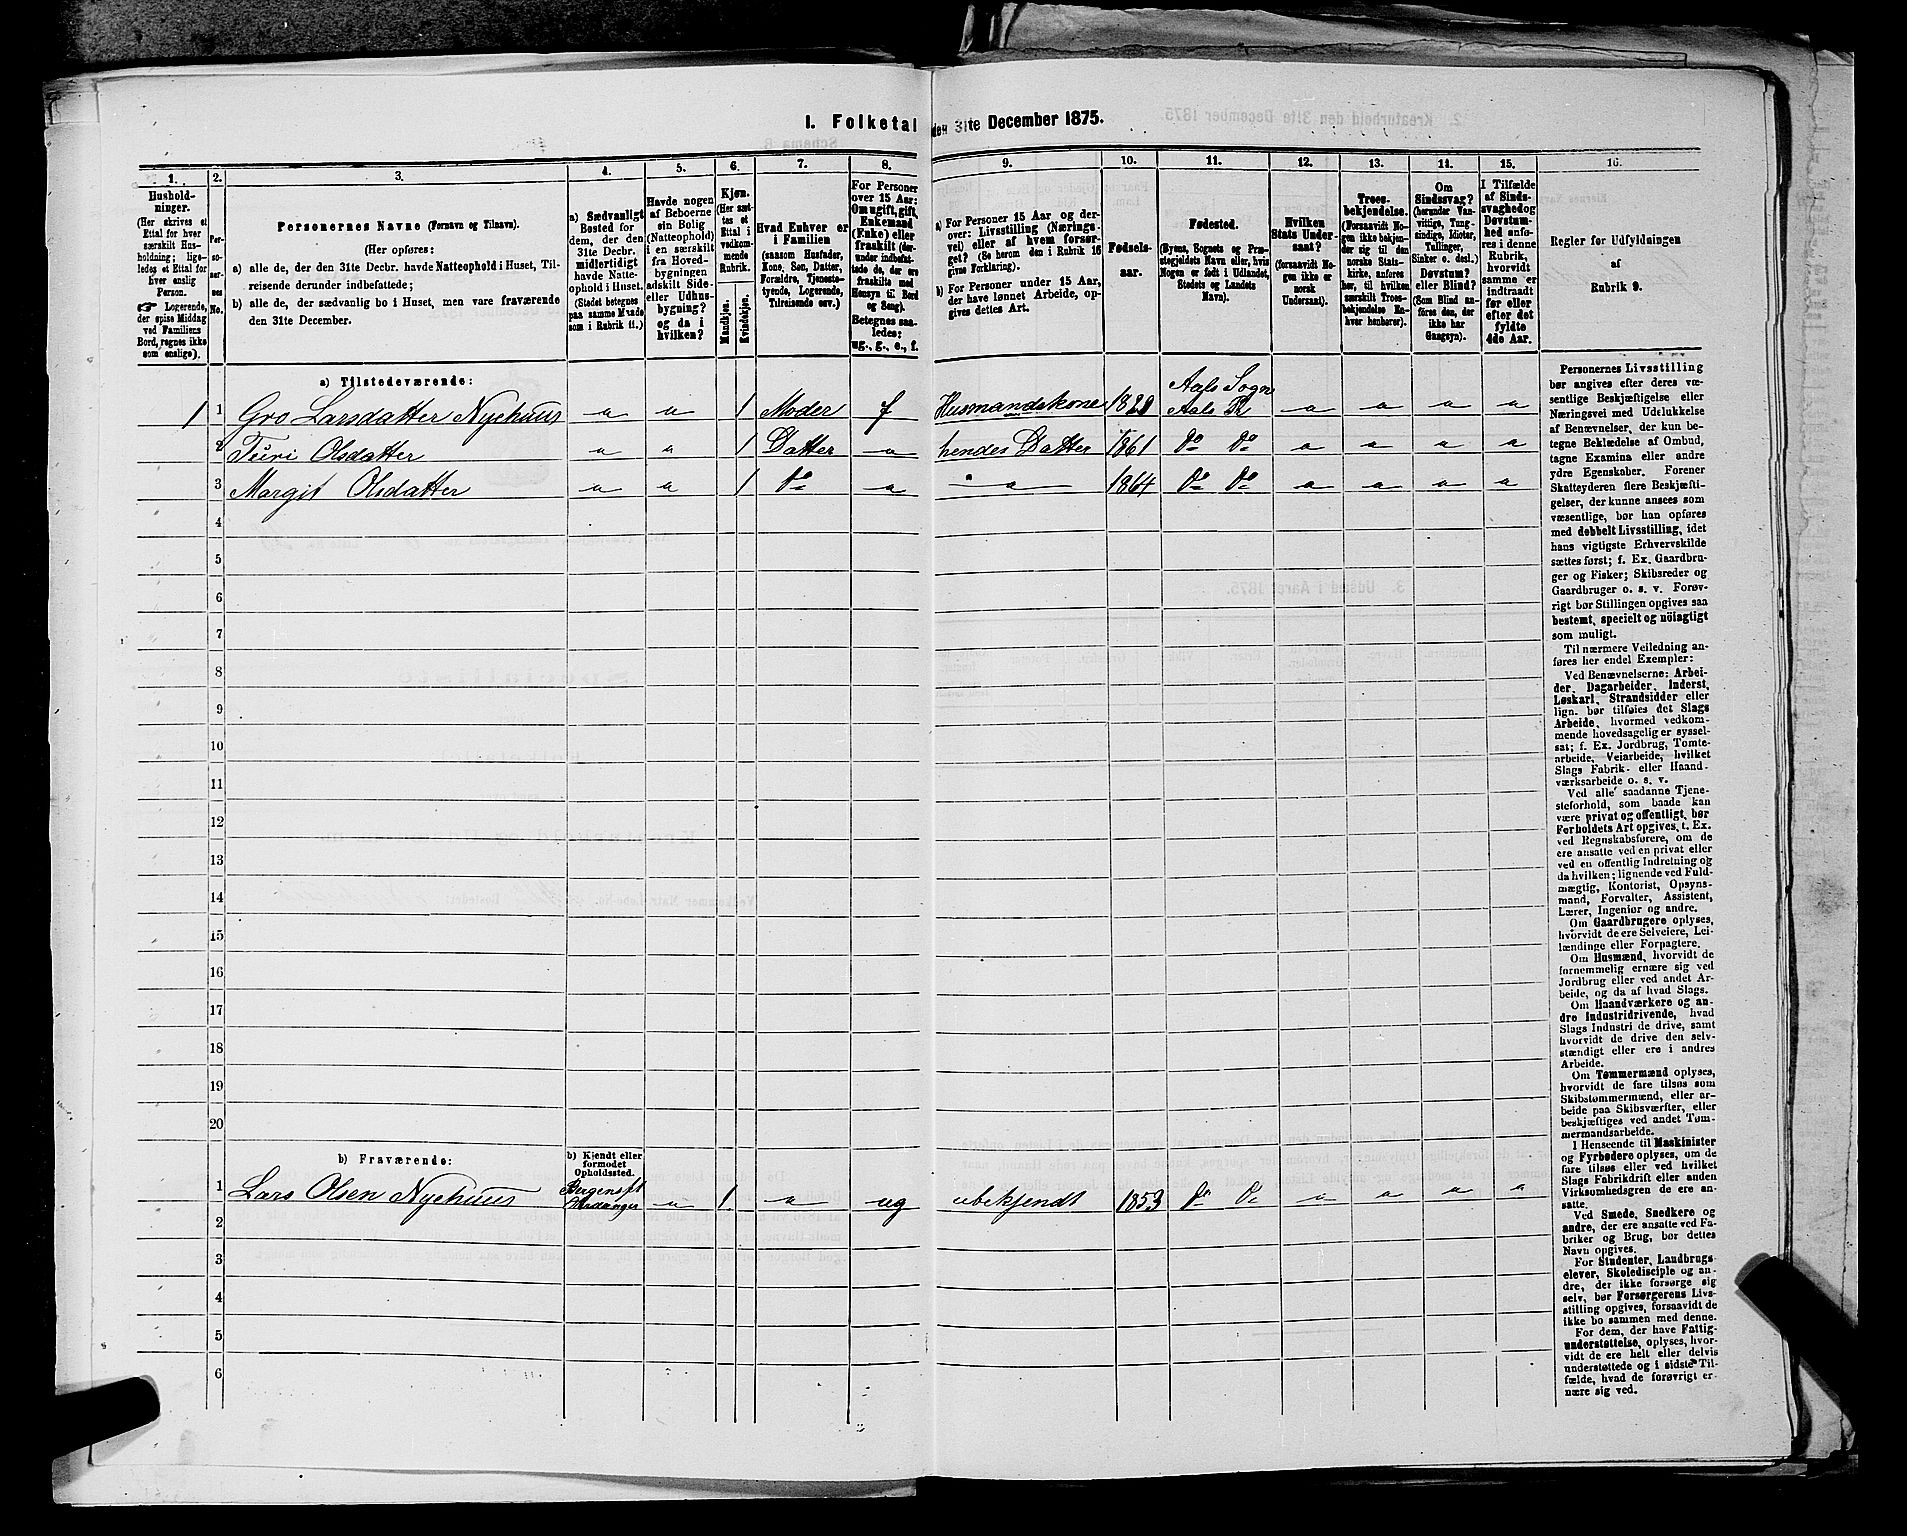 I. Folketal den 31te December 1875.
1.
2.
3.
4.
5.
6.
7.
8.
9.
10.
11.
12.
13.
14.
15.
16.
Hushold-
ninger.
(Her skrives et
Ettal for hver
særskilt Hus-
holdning; lige-
ledes et Ettal for
hver enslig
Person.
☞ Logerende,
der spise Middag
ved Familiens
Bord, regnes ikke
som enslige).
Per-
so-
ner-
nes
No.
Personernes Navne (Fornavn og Tilnavn).
(Her opføres:
a) alle de, der den 31te Decbr. havde Natteophold i Huset, Til-
reisende derunder indbefattede;
b) alle de, der sædvanlig bo i Huset, men vare fraværende
den 31te December.
a) Sædvanligt
Bosted for
dem, der den
31te Decbr.
midlertidigt
havde Natte-
ophold i Huset.
(Stedet betegnes
paa samme Maade
som i Rubrik 11.)
Havde nogen
af Beboerne
sin Bolig
(Natteophold)
i en særskilt
fra Hoved-
bygningen
adskilt Side-
eller Udhus-
bygning?
og da i
hvilken?
Kjøn.
(Her sæt-
tes et
Ettal i
vedkom-
mende
Rubrik.
Mandkjøn.
Kvindekjøn.
Hvad Enhver er
i Familien
(saasom Husfader,
Kone, Søn, Datter,
Forældre, Tjeneste-
tyende, Logerende,
Tilreisende osv.)
For Personer
over 15 Aar:
Om ugift, gift,
Enkemand
(Enke) eller
fraskilt (der-
under indbefat-
tede de, der ere
fraskilte med
Hensyn til Bord
og Seng).
Betegnes saa-
ledes:
ug., g., e., f.
a) For Personer 15 Aar og der-
over: Livsstilling (Nærings-
vei) eller af hvem forsør-
get? (Se herom den i Rubrik 16
givne Forklaring).
b) For Personer under 15 Aar,
der have lønnet Arbeide, op-
gives dettes Art.
Fødsels-
aar.
Fødested.
(Byens, Sognets og Præ-
stegjeldets Navn eller, hvis
Nogen er født i Udlandet,
Stedets og Landets
Navn).
Hvilken
Stats Under-
saat?
(forsaavidt No-
gen ikke er
norsk
Undersaat).
Troes-
bekjendelse.
(Forsaavidt No-
gen ikke bekjen-
der sig til den
norske Stats-
kirke, anføres
her, til hvilken
særskilt Troes-
bekjendelse En-
hver henhører).
Om
Sindssvag?
(herunder Van-
vittige, Tung-
sindige, Idioter,
Tullinger,
Sinker o. desl.)
Døvstum?
eller Blind?
(Som Blind an-
føres den, der
ikke har
Gangsyn).
I Tilfælde
af Sinds-
svaghed og
Døvstum-
hed anfø-
res i denne
Rubrik,
hvorvidt
samme er
indtraadt
før eller
efter det
fyldte
4de Aar.
Regler for Udfyldningen
af
Rubrik 9.
a) Tilstedeværende:
1 1 Gro Larsdatter Nyehuus " " 1 Moder f Husmandskone 1820 Aals Sogn
Aals Pr " " " "
2 Turi Olsdatter " " 1 Datter " hendes Datter 1861 Do Do " " " "
3 Margit Olsdatter " " 1 Do " " " 1864 Do Do " " " "
4
5
6
7
8
9
10
11
12
13
14
15
16
17
18
19
20
b) Fraværende:
b) Kjendt eller
formodet
Opholdssted.
1 Lars Olsen Nyehuus Bergens St
Hardanger " 1 " ug ubekjendt 1853 Do Do " " " "
2
3
4
5
6
Personernes Livsstilling
bør angives efter deres væ-
sentlige Beskjæftigelse eller
Næringsvei med Udelukkelse
af Benævnelser, der kun be-
tegne Beklædelse af Ombud,
tagne Examina eller andre
ydre Egenskaber. Forener
Skatteyderen flere Beskjæfti-
gelser, der kunne ansees som
væsentlige, bør han opføres
med dobbelt Livsstilling, idet
hans vigtigste Erhvervskilde
sættes først; f. Ex. Gaardbru-
ger og Fisker; Skibsreder og
Gaardbruger o. s. v. Forøv-
rigt bør Stillingen opgives saa
bestemt, specielt og nöiagtigt
som muligt.
Til nærmere Veiledning an-
føres her endel Exempler:
Ved Benævnelserne: Arbei-
der, Dagarbeider, Inderst,
Løskarl, Strandsidder eller
lign. bør tilføies det Slags
Arbeide, hvormed vedkom-
mende hovedsagelig er syssel-
sat; f. Ex. Jordbrug, Tomte-
arbeide, Veiarbeide, hvilket
Slags Fabrik- eller Haand-
værksarbeide o. s. v.
Ved alle saadanne Tjene-
steforhold, som baade kan
være privat og offentligt, bør
Forholdets Art opgives, t. Ex.
ved Regnskabsførere, om de
ere ansatte ved en privat eller
ved en offentlig Indretning og
da hvilken; lignende ved Fuld-
mægtig, Kontorist, Opsyns-
mand, Forvalter, Assistent,
Lærer, Ingeniør og andre.
Om Gaardbrugere oplyses,
hvorvidt de ere Selveiere, Lei-
lændinge eller Forpagtere.
Om Husmænd, hvorvidt de
fornemmelig ernære sig ved
Jordbrug eller ved andet Ar-
beide, og da af hvad Slags.
Om Haandværkere og an-
dre Industridrivende, hvad
Slags Industri de drive, samt
hvorvidt de drive den selv-
stændigt eller ere i andres
Arbeide.
Om Tømmermænd oplyses,
hvorvidt de fare tilsøs som
Skibstømmermænd, eller ar-
beide paa Skibsværfter, eller
beskjæftiges ved andet Tøm-
mermandsarbeide.
I Henseende til Maskinister
og Fyrbødere oplyses, om de
fare tilsøs eller ved hvilket
Slags Fabrikdrift eller anden
Virksomhedsgren de ere an-
satte.
Ved Smede, Snedkere og
andre, der ere ansatte ved Fa-
briker og Brug, bør dettes
Navn opgives.
For Studenter, Landbrugs-
elever, Skoledisciple og an-
dre, der ikke forsørge sig
selv, bør Forsørgerens Livs-
stilling opgives, forsaavidt de
ikke bo sammen med denne.
For dem, der have Fattig-
understøttelse, oplyses, hvor-
vidt de ere helt eller delvis
understøttede og i sidste Til-
fælde, hvad de forøvrigt er-
nære sig ved.